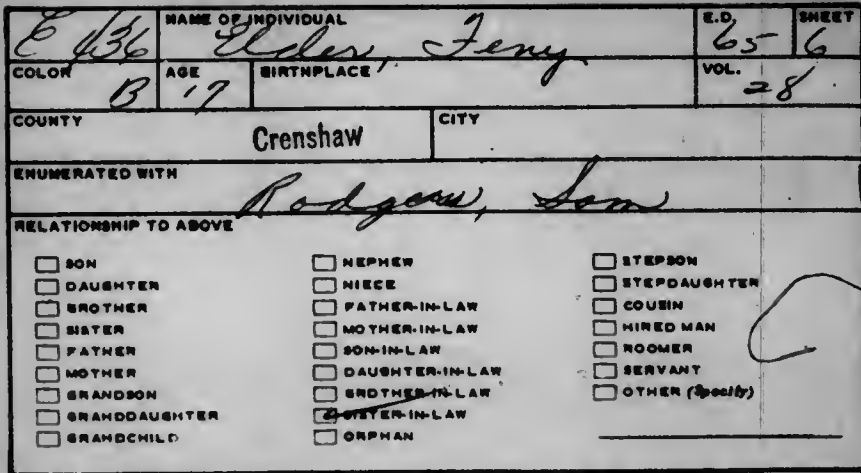 E 436 NAME OF INDIVIDUAL Elder, Feny E.D. 65 SHEET 6
COLOR B AGE 17 BIRTHPLACE VOL. 28
COUNTY Crenshaw CITY
ENUMERATED WITH Rodgers, Som
RELATIONSHIP TO ABOVE
SON
DAUGHTER
BROTHER
SISTER
FATHER
MOTHER
GRANDSON
GRANDDAUGHTER
GRANDCHILD
NEPHEW
NIECE
FATHER-IN-LAW
MOTHER-IN-LAW
SON-IN-LAW
DAUGHTER-IN-LAW
BROTHER-IN-LAW
SISTER-IN-LAW
ORPHAN
STEPSON
STEPDAUGHTER
COUSIN
HIRED MAN
ROOMER
SERVANT
OTHER (Specify)